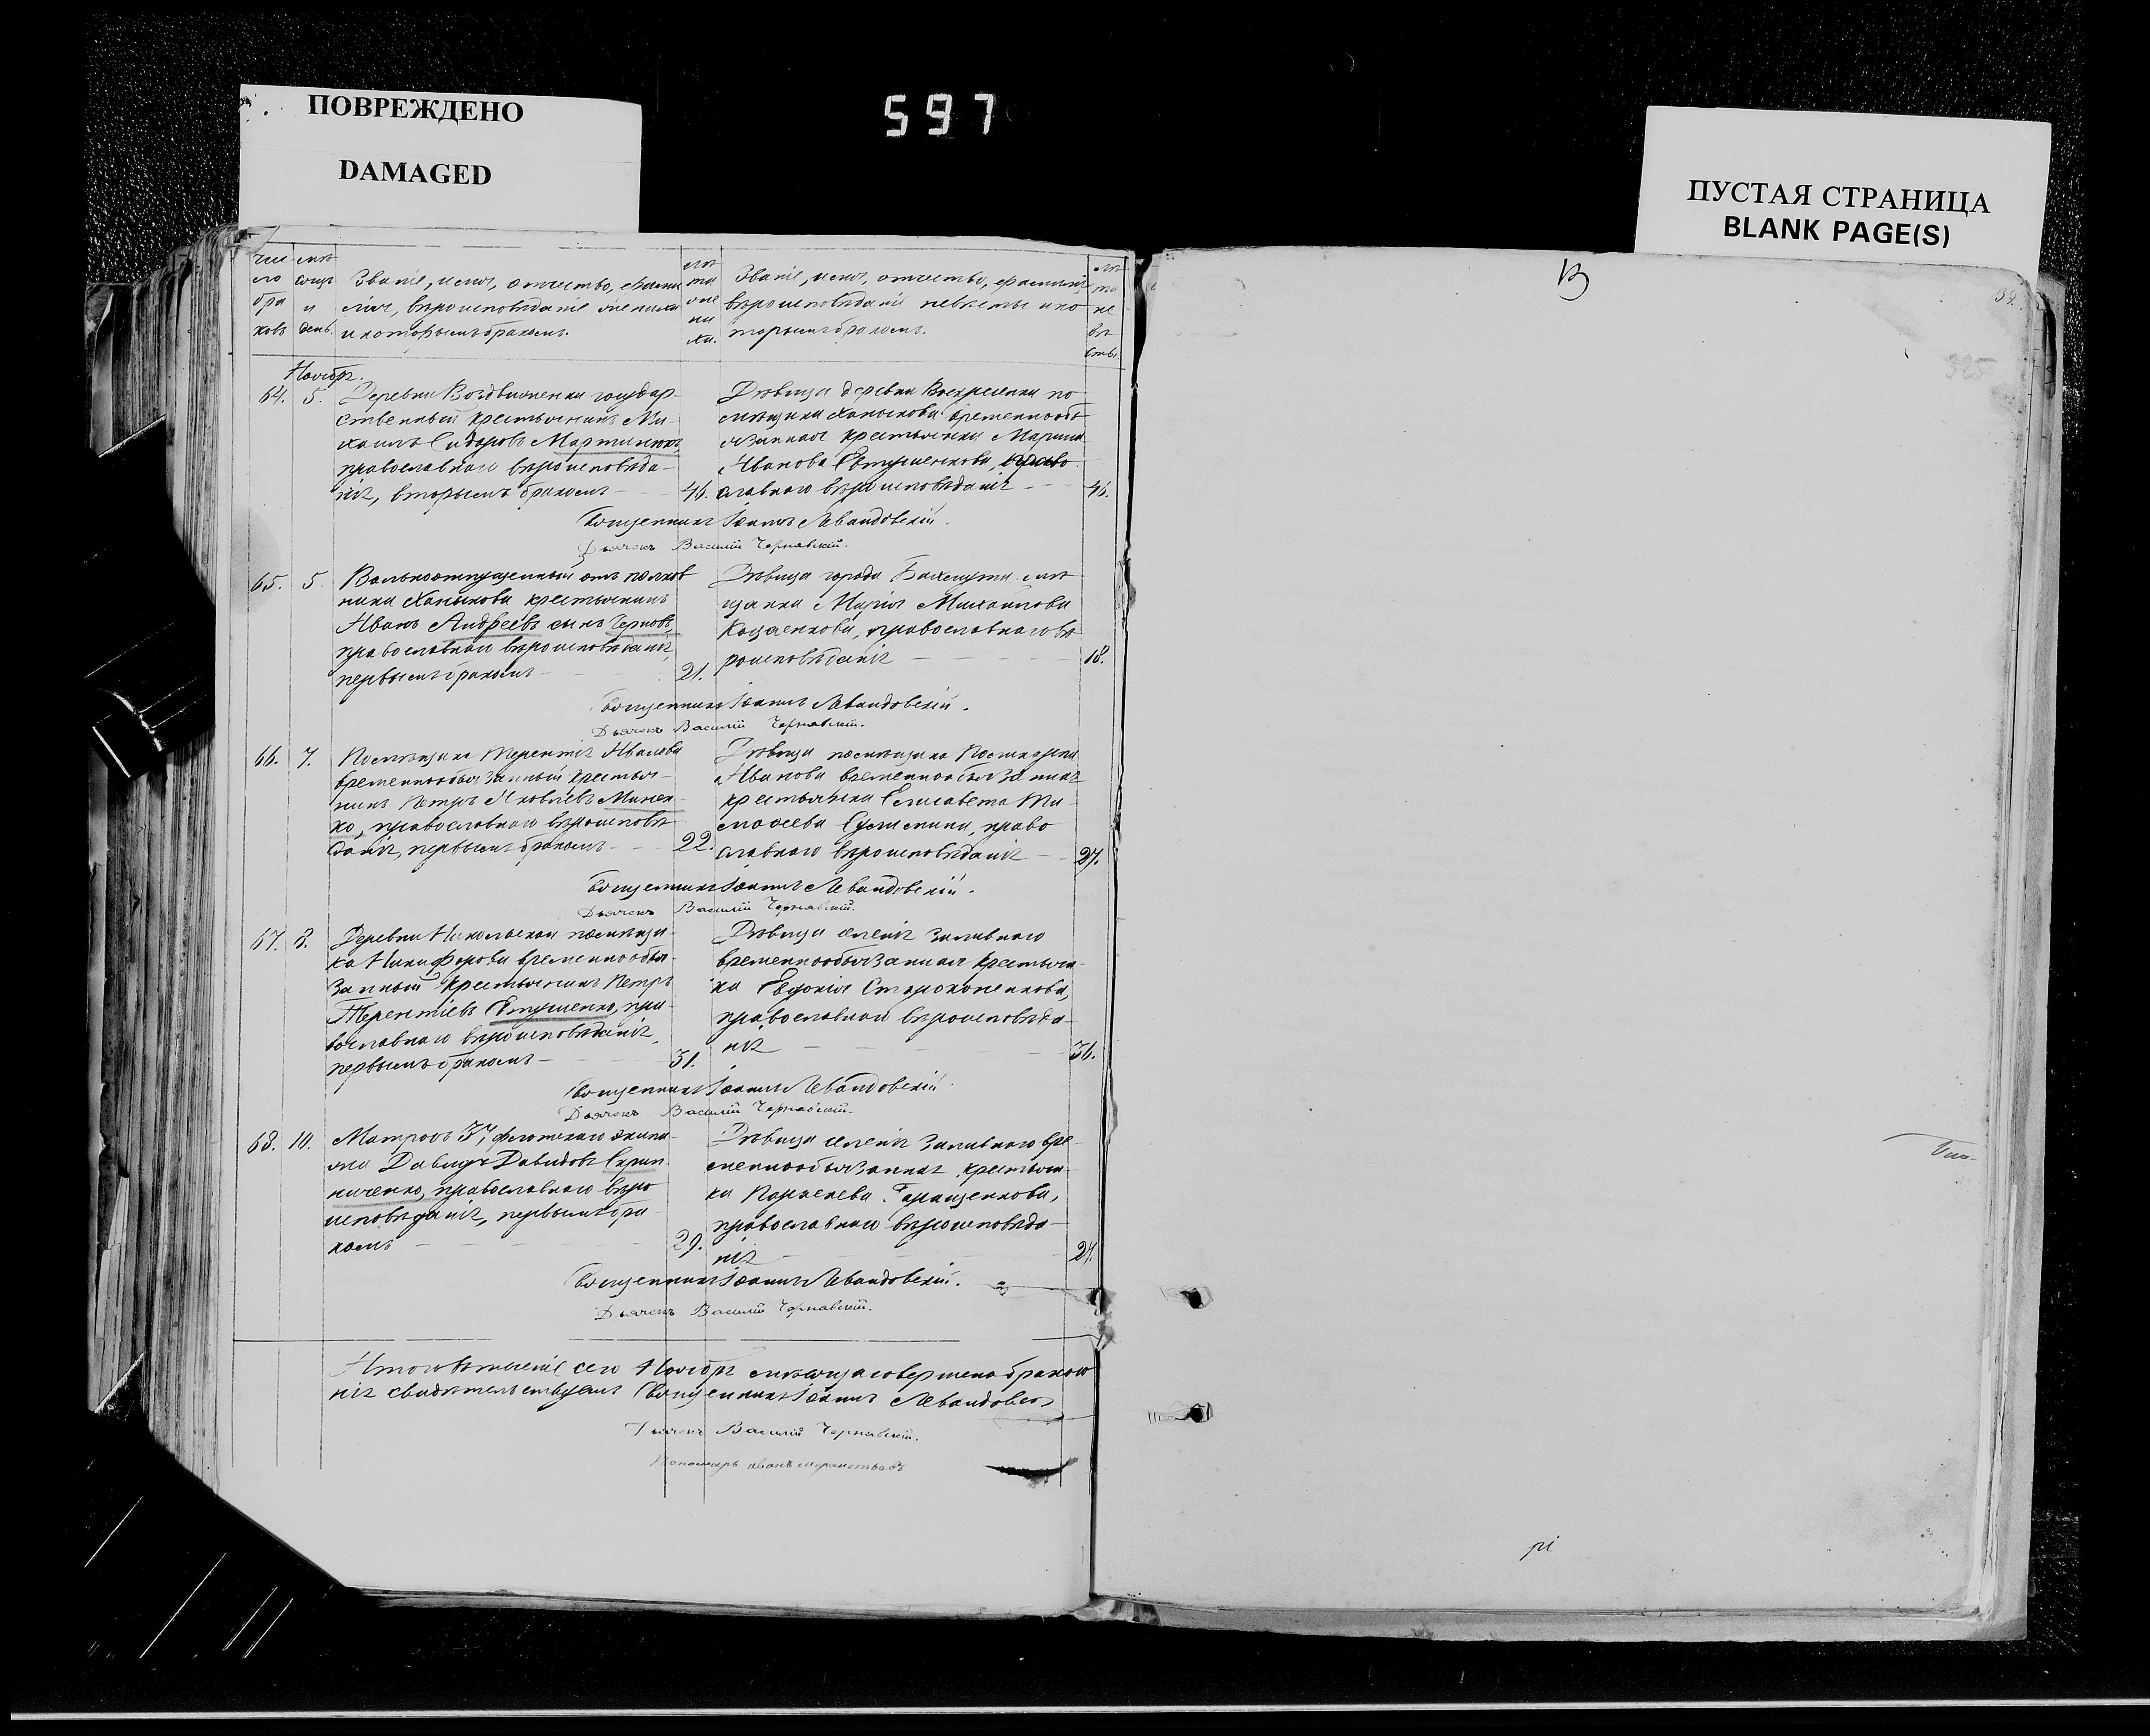 ПОВРЕЖДЕНО
DAMAGED
597
ПУСТАЯ СТРАНИЦА
BLANK PAGE(S)
Чис
ло
бра
ковъ
мѣ
сяцъ
и
день.
Званіе, имя, отчество, фами
лія, вѣроисповѣданіе жениха
и которымъ бракомъ.
лѣ
та
же
ни
ха.
Званіе, имя, отчество, фамилія
вѣроисповѣданіе невѣсты и ко
торымъ бракомъ.
лѣ
та
не
вѣ
сты.
Ноябрь.
64. 5. Деревни Воздвиженки государ-
ственный крестьянинъ Ми-
хаилъ Сидоровъ Мартинюкъ,
православнаго вѣроисповѣда-
нія, вторымъ бракомъ 46.
Дѣвица деревни Воскресенки по
мѣщика Ханыкова временнооб
язанная крестьянка Марина
Иванова Евтушенкова, право
славнаго вѣроисповѣданія 46.
Священникъ Іоаннъ Левандовскій.
Дьячекъ Василій Чернявскій.
65. 5. Вольноотпущенный отъ полков
ника Ханыкова крестьянинъ
Иванъ Андреевъ сынъ Черновъ,
православнаго вѣроисповѣданія,
первымъ бракомъ 21.
Дѣвица города Бахмута мѣ
щанка Марія Михайлова
Кощенкова, православнаго вѣ
роисповѣданія 18.
Священникъ Іоаннъ Левандовскій.
Дьячекъ Василій Чернявскій.
66. 7. Помѣщика Терентія Иванова
временнообязанный крестья-
нинъ Петръ Яковлевъ Минен-
ко, православнаго вѣроисповѣ
данія, первымъ бракомъ 22.
Дѣвица помѣщика
Иванова временнообязанная
крестьянка Елисавета Ти
моѳеева православнаго вѣроисповѣданія 27.
Священникъ Іоаннъ Левандовскій.
Дьячекъ Василій Чернявскій.
67. 8. Деревни Никольской помѣщи-
ка Никифорова временнообя-
занный крестьянинъ Петръ
Терентіевъ Евтушенко, пра-
вославнаго вѣроисповѣданія,
первымъ бракомъ 31.
Дѣвица селенія Заливнаго
временнообязанная крестьян
ка Евдокія Староконенкова,
православнаго вѣроисповѣда-
нія 36.
Священникъ Іоаннъ Левандовскій.
Дьячекъ Василій Чернявскій.
68. 10. Матросъ 37, флотскаго экипа-
жа Давидъ Давидовъ Скрип-
ниченко, православнаго вѣро
исповѣданія, первымъ бра-
комъ 29.
Дѣвица селенія Заливнаго вре
меннообязанная крестьян
ка Геращенкова,
православнаго вѣроисповѣда-
нія 24.
Священникъ Іоаннъ Левандовскій.
Дьячекъ Василій Чернявскій.
сего Ноября мѣсяца совершено
свидѣтельствуемъ Священникъ Іоаннъ Левандовс
Дьячекъ Василій Чернявскій.
Пономарь иванъ
325